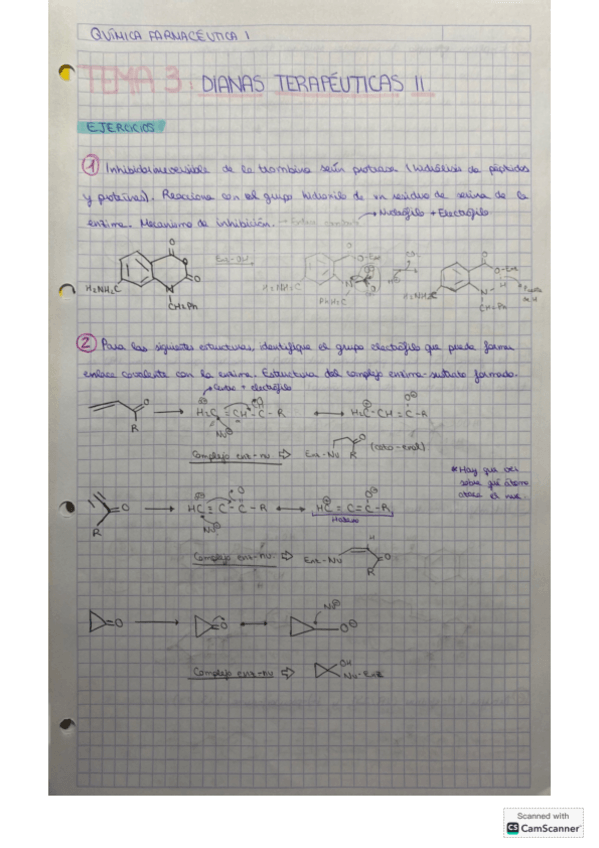 QUÍMICA FARMACÉUTICA I
TEMA 3: DIANAS TERAPÉUTICAS II
EJERCICIOS
① Inhibidor irreversible de la trombina serín proteasa (hidrólisis de péptidos
y proteínas). Reacciona con el grupo hidroxilo de un residuo de serina de la
→ Nucleófilo + Electrófilo
enzima. Mecanismo de inhibición.
Enz-OH
H2NH2C
N
CH2Ph
O-Enz
PhH2C
② Para las siguientes estructuras, identifique el grupo electrófilo que puede formar
enlace covalente con la enzima. Estructura del complejo enzima-sustrato formado.
R
H2C = CH - C - R
H2C - CH = C - R
Nu
Complejo enz-nu ⇒ Enz-Nu R (ceto-enol)
* Hay que ver
sobre qué átomo
ataca el nuc.
R
HC ≡ C - C - R
HC = C = C - R
Nu
Complejo enz-nu ⇒ Enz-Nu H O R
=O
O
Nu
Complejo enz-nu ⇒ OH Nu-Enz
Scanned with
CS CamScanner